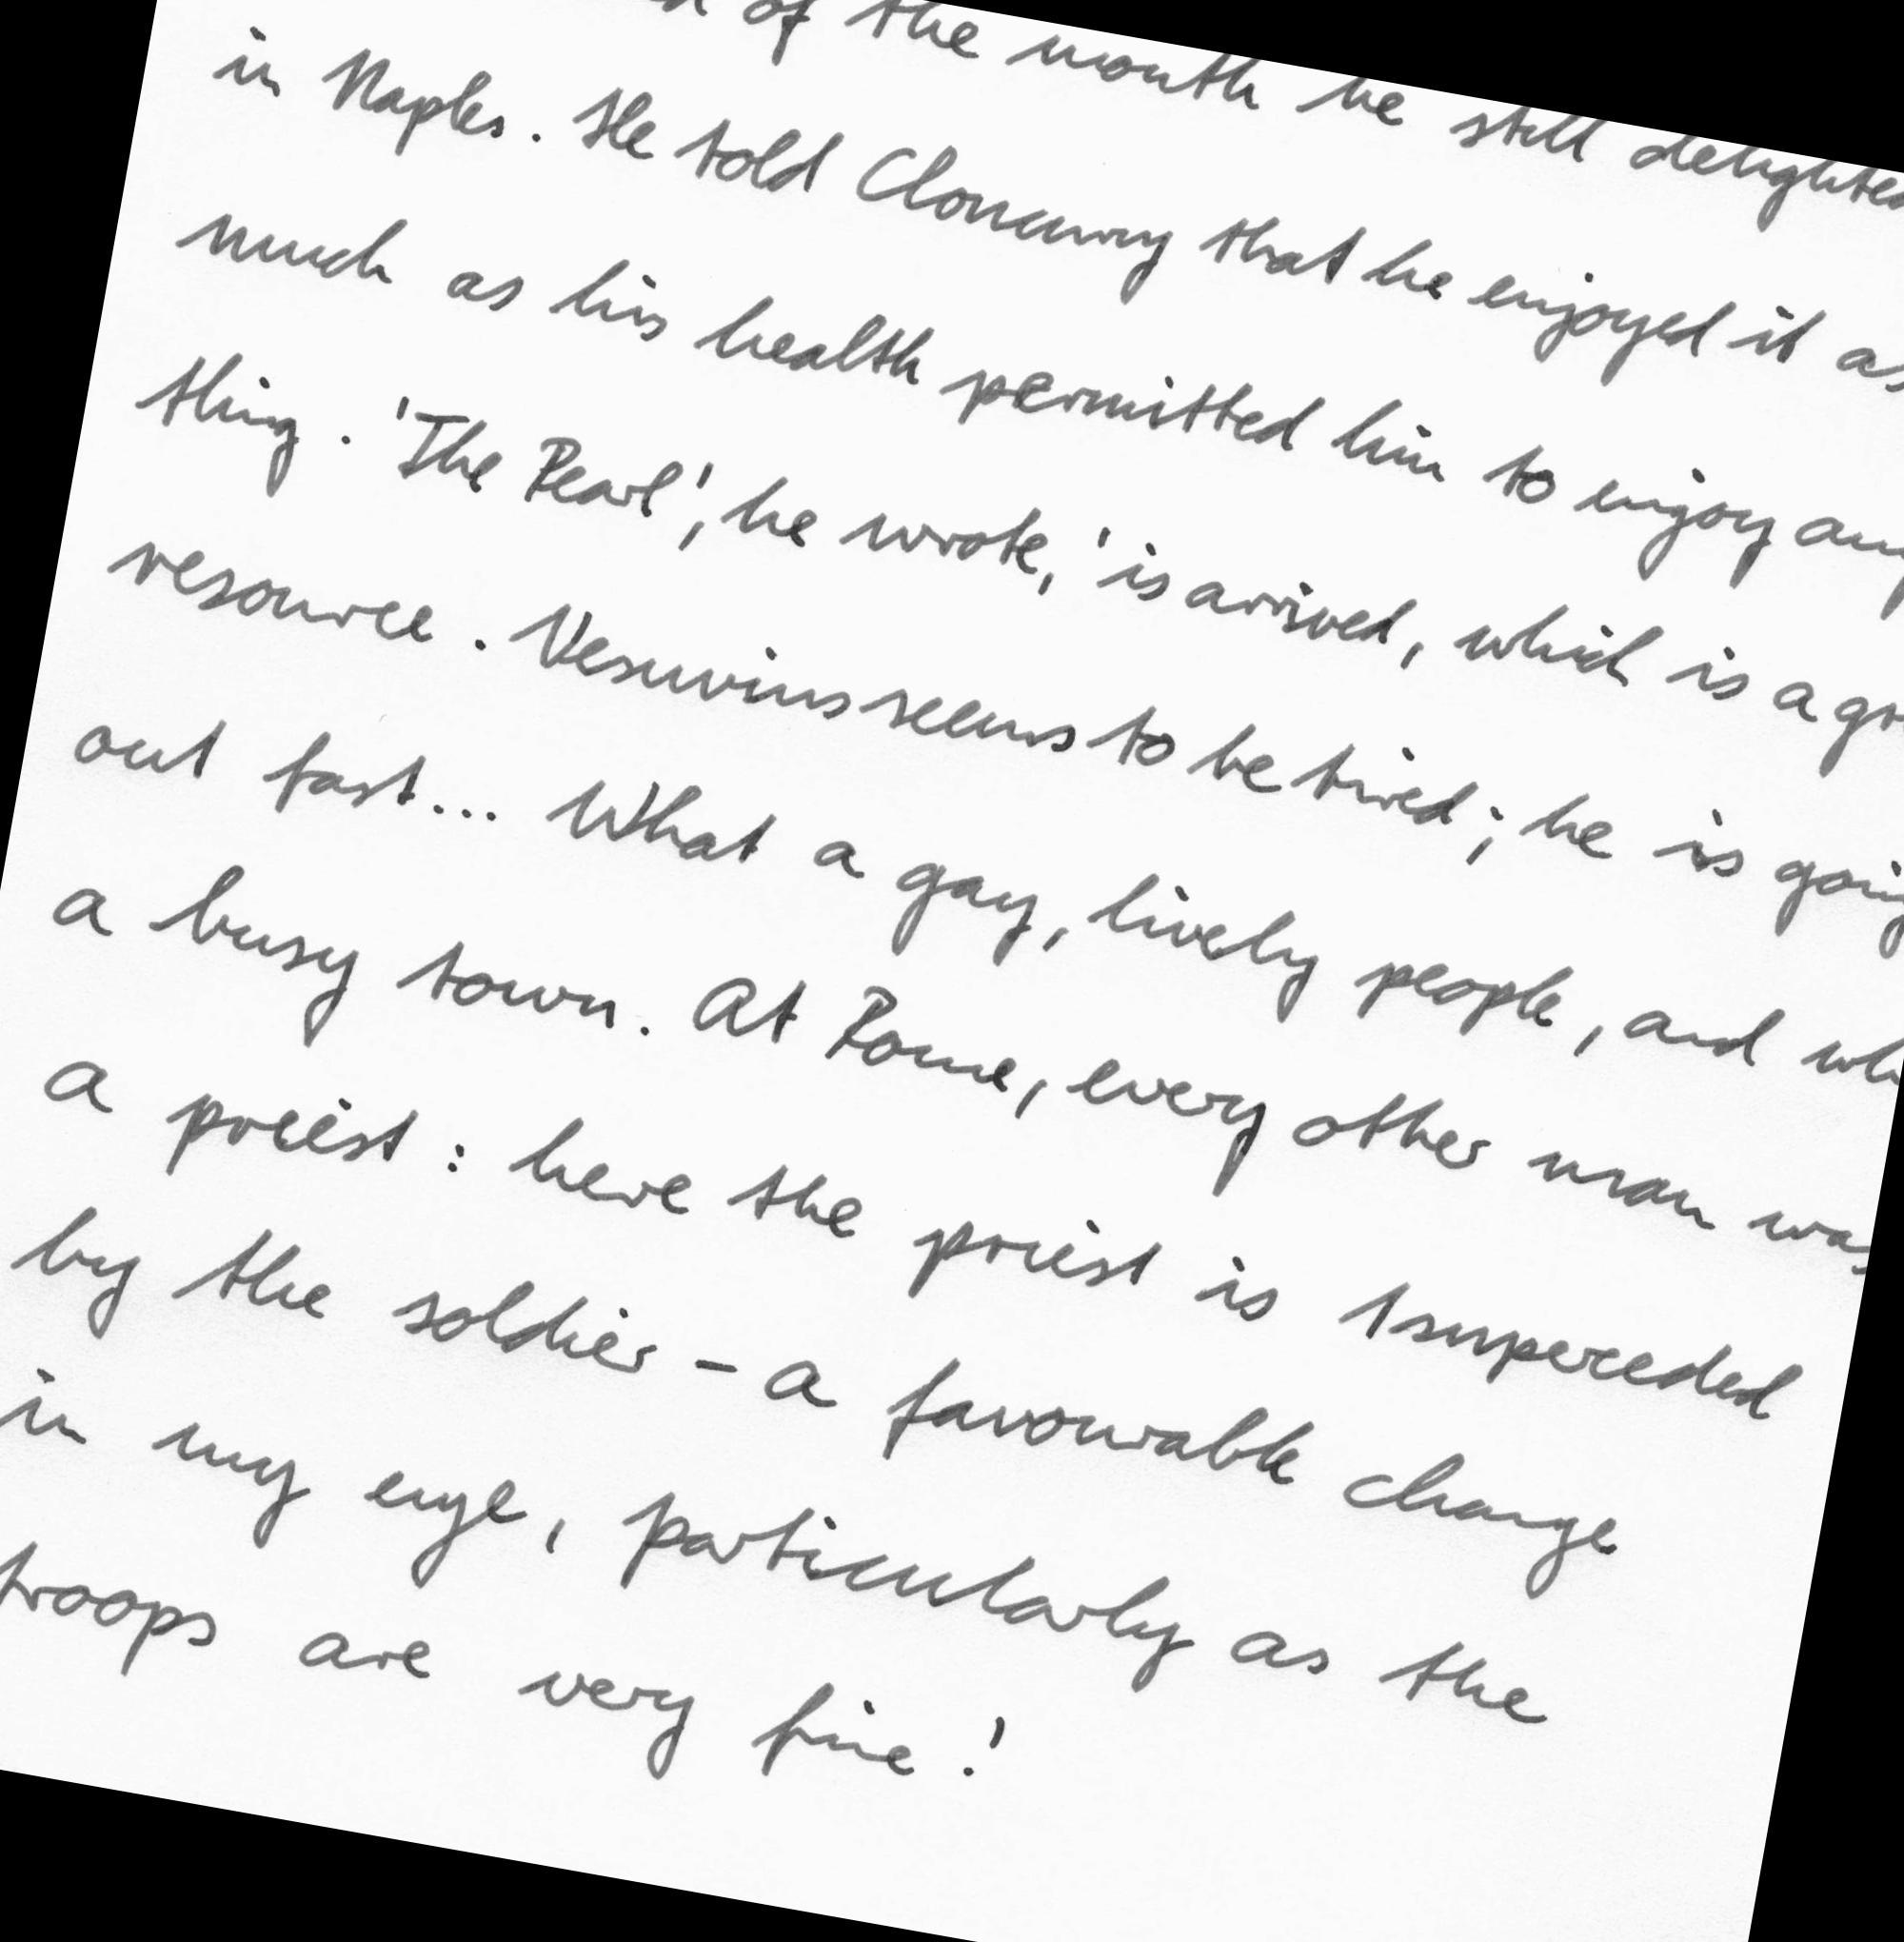 of the month he still delighted
in Naples. He told Cloncurry that he enjoyed it as
much as his health permitted him to enjoy any
thing. 'The Pearl', he wrote, 'is arrived, which is a
resource. Vesuvius seems to be tired; he is going
out fast... What a gay, lively people, and
a busy town. At Rome, every other man was
a priest: here the priest is superceded
by the soldier - a favourable change
in my eye, particularly as the
troops are very fine!'